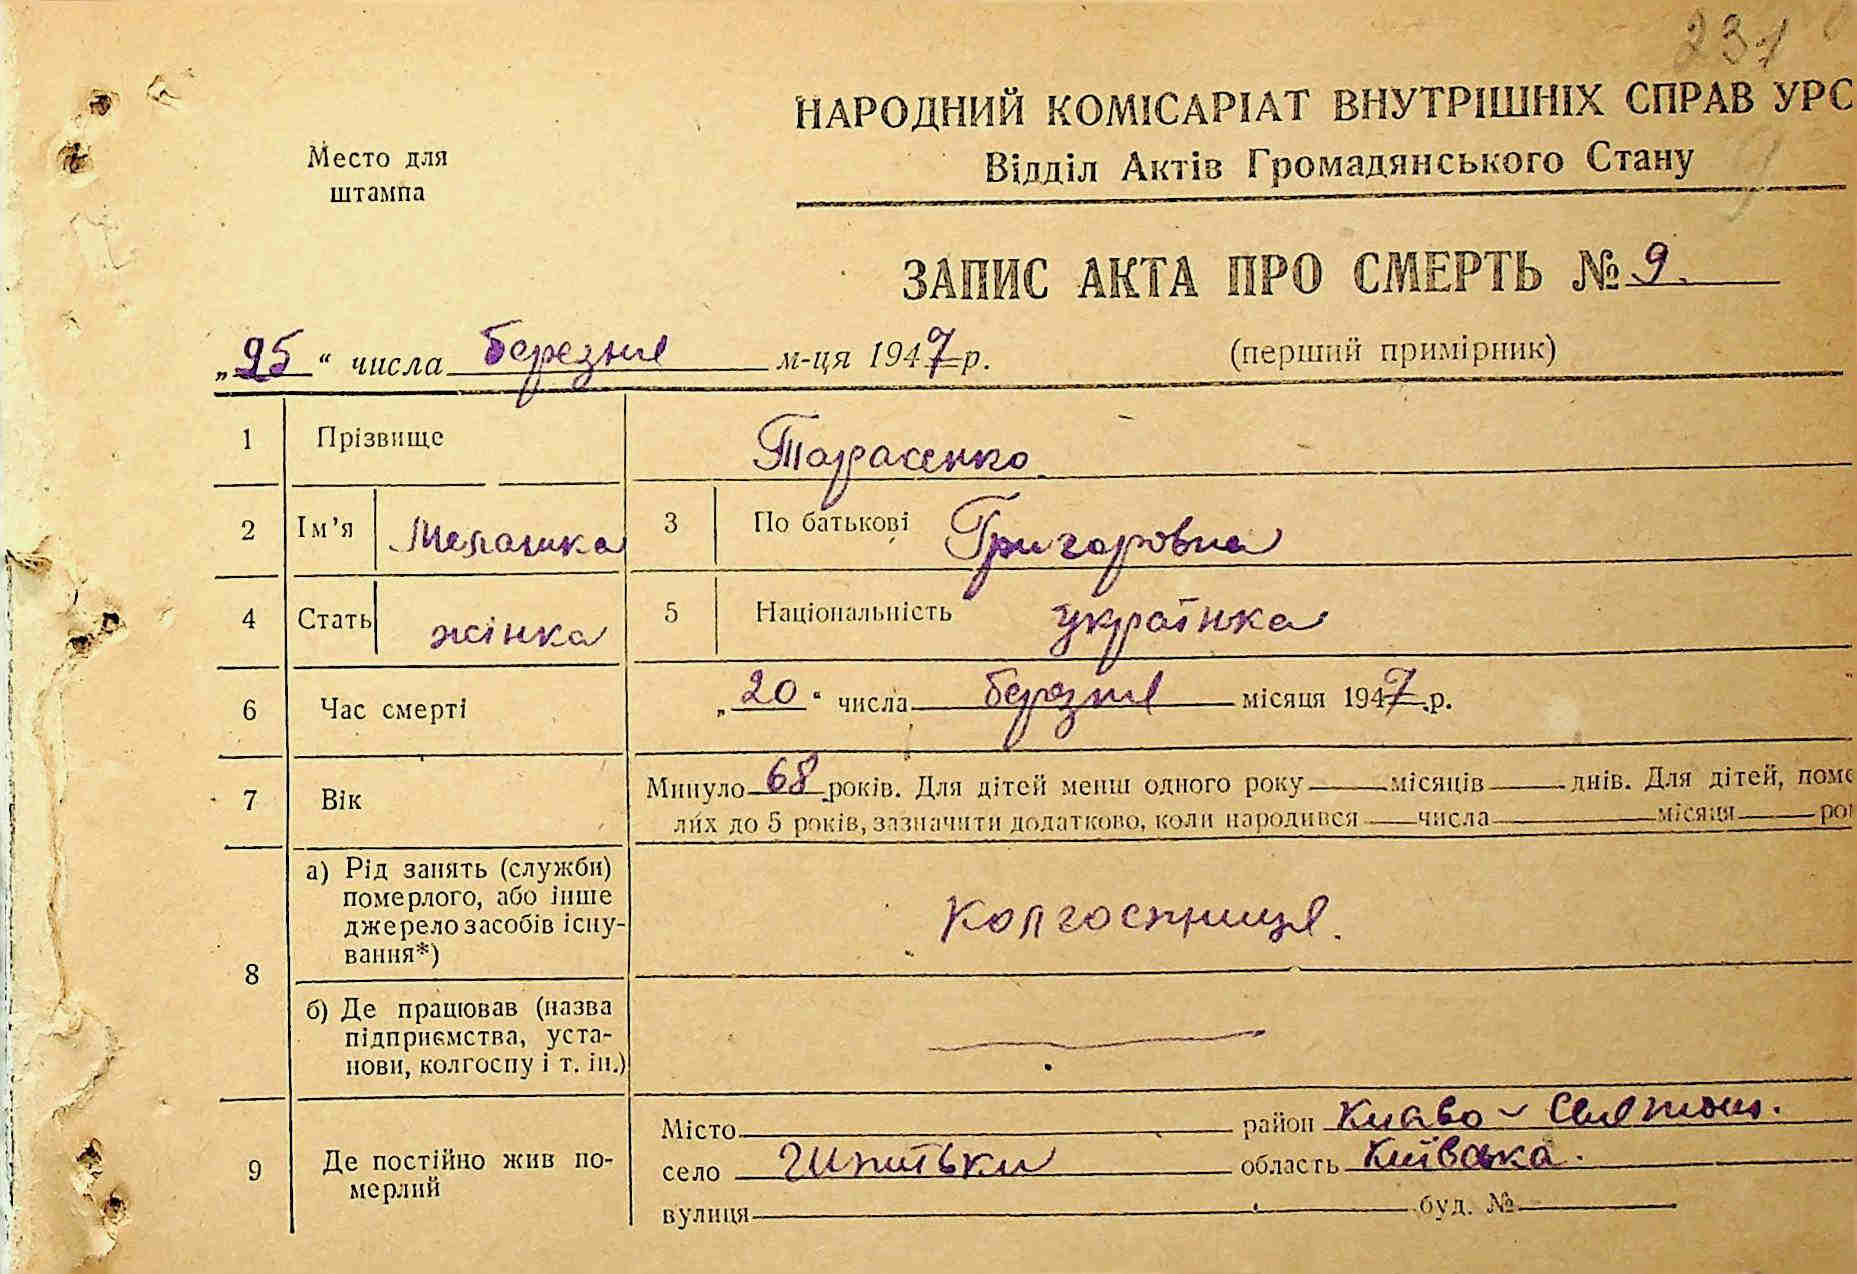 231
НАРОДНИЙ КОМІСАРІАТ ВНУТРІШНІХ СПРАВ УРС
Место для
штампа
Відділ Актів Громадянського Стану
ЗАПИС АКТА ПРО СМЕРТЬ № 9.
„25“ числа березня м-ця 1947 р.
(перший примірник)
1 Прізвище Тарасенко
2 Ім'я Мелашка 3 По батькові Григоровна
4 Стать жінка 5 Національність українка
6 Час смерті „20“ числа березня місяця 1947 р.
7 Вік Минуло 68 років. Для дітей менш одного року місяців днів. Для дітей, поме
лих до 5 років, зазначити додатково, коли народився числа місяця ро
8 а) Рід занять (служби)
померлого, або інше
джерело засобів існу-
вання*)
Колгоспниця.
б) Де працював (назва
підприємства, уста-
нови, колгоспу і т. ін.)
9 Де постійно жив по-
мерлий
Місто район Києво-
село область Київська.
вулиця буд. №